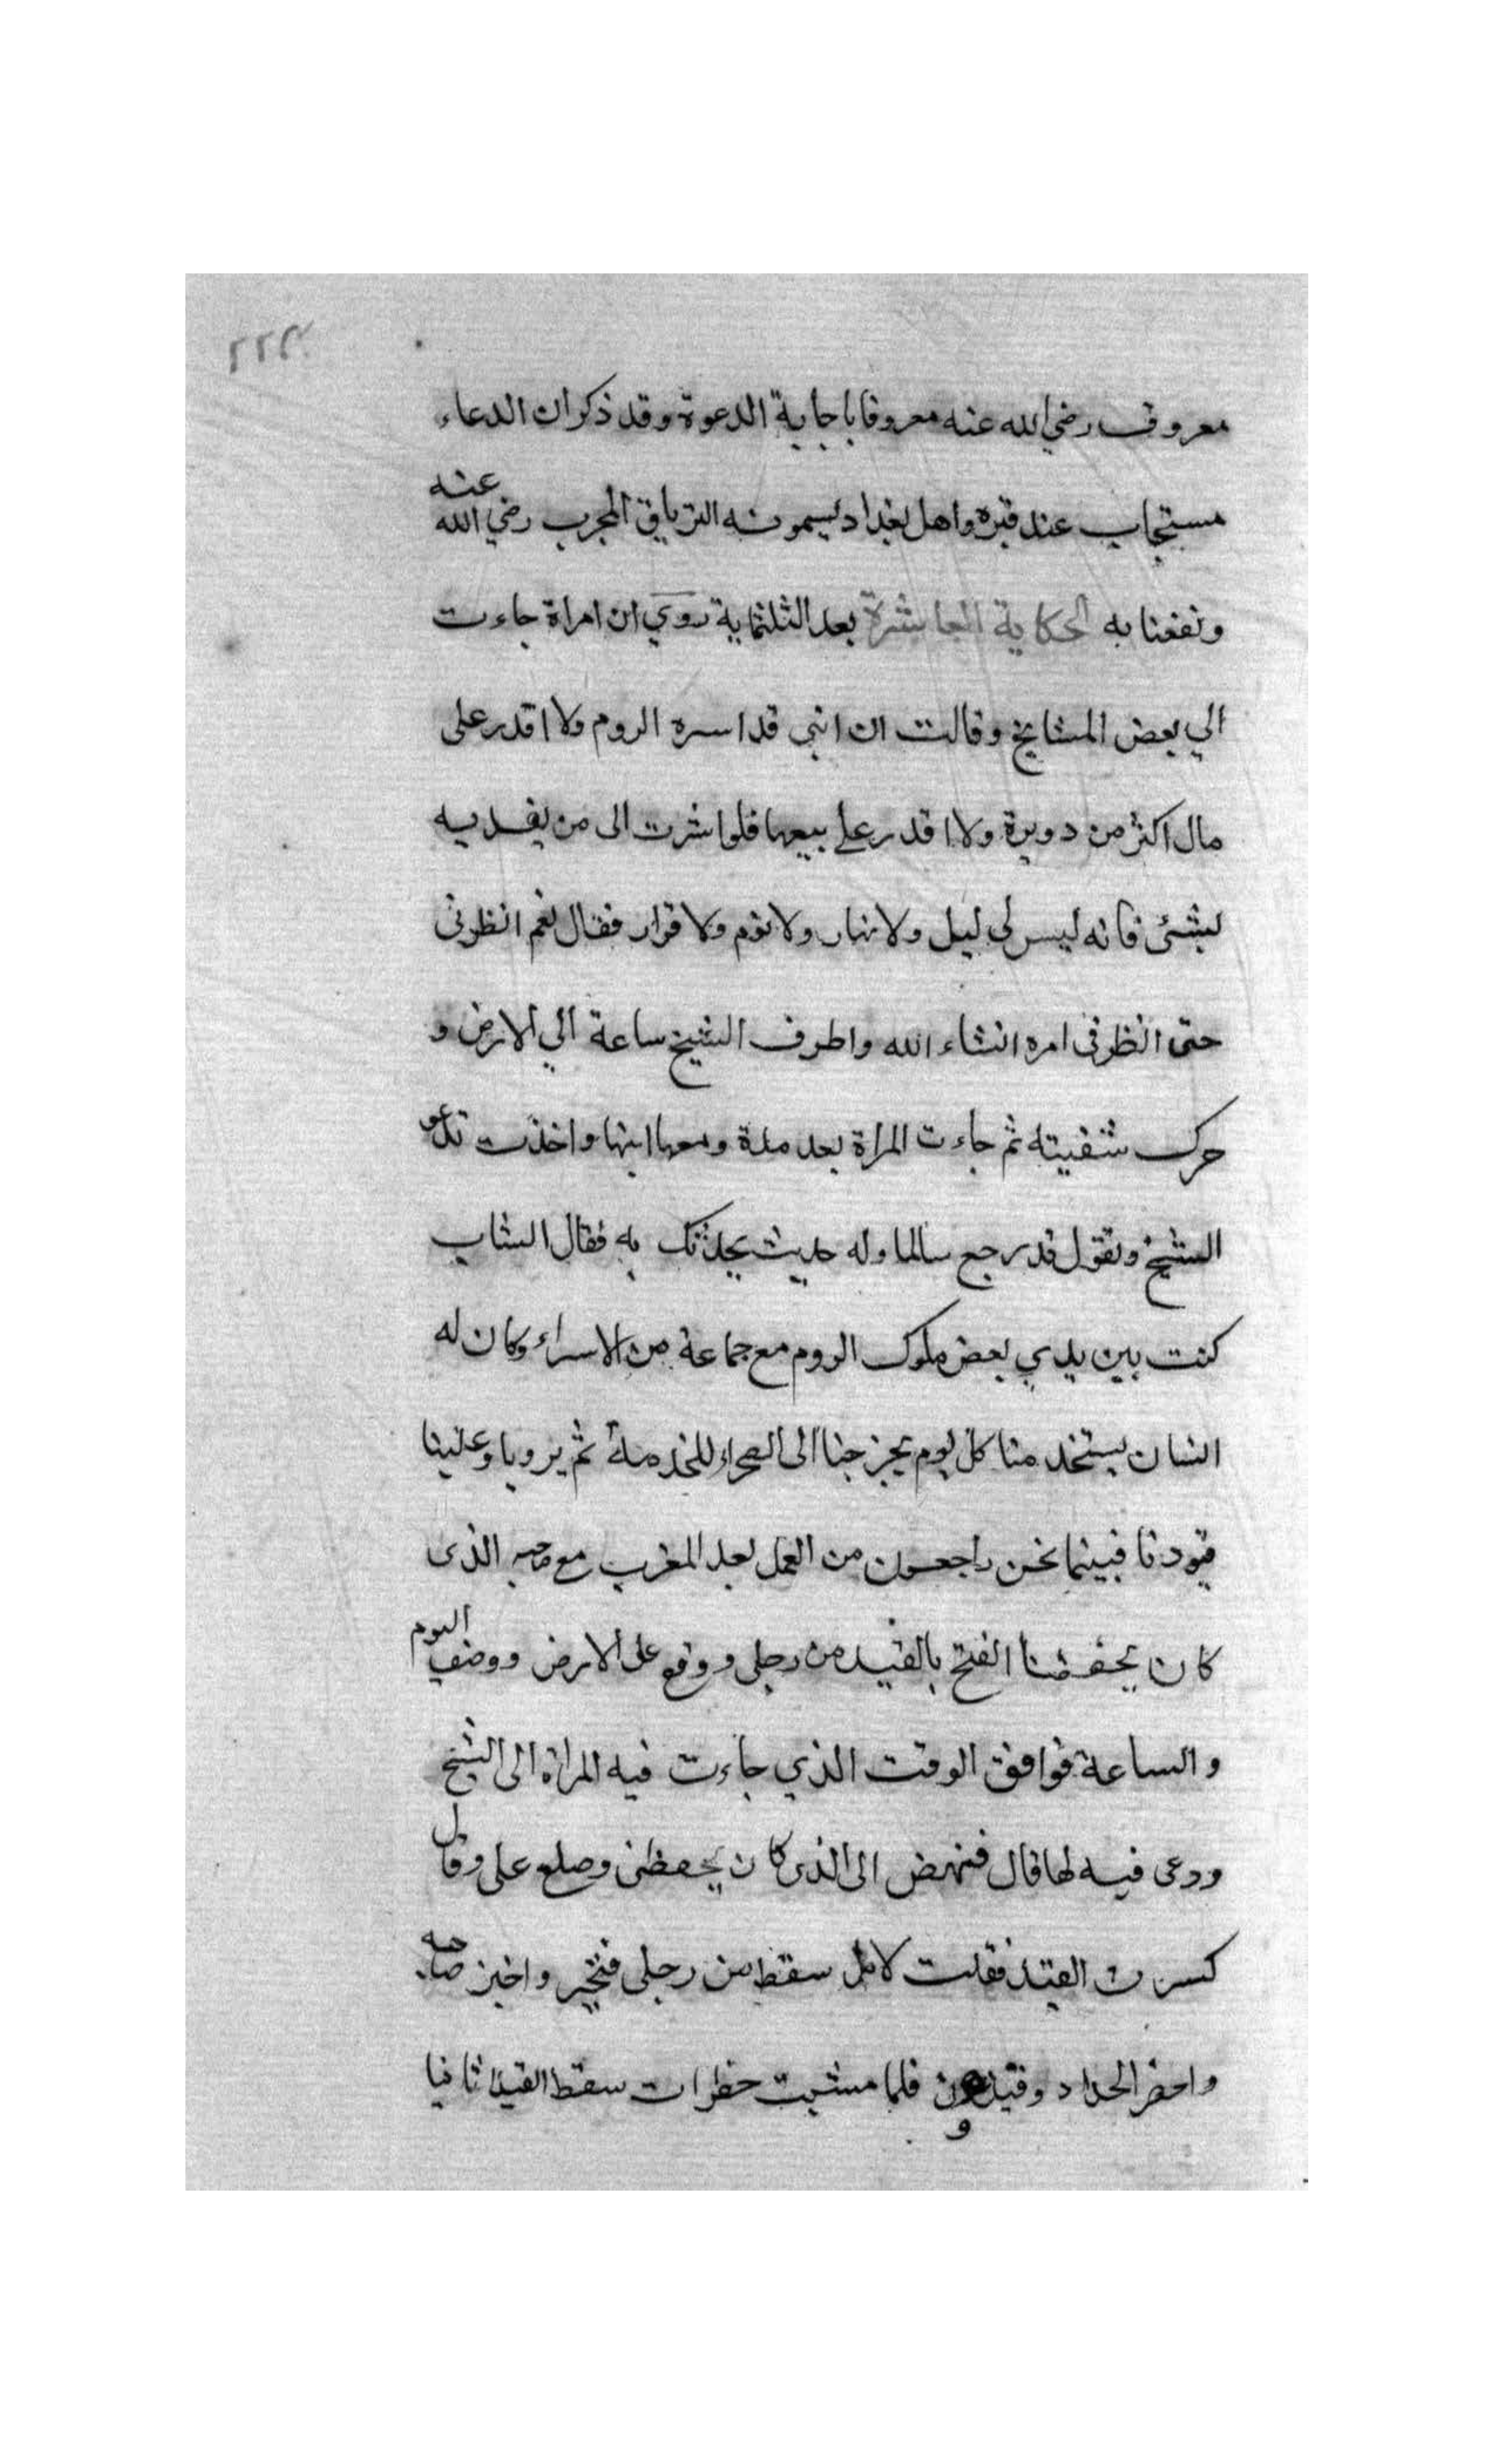 ٢٢٣
معروف رضي الله عنه معروفا باجابة الدعوة وقد ذكر ان الدعاء
مستجاب عند قبره واهل بغداد يسمونه الترياق المجرب رضي الله عنه
ونفعنا به الحكاية العاشرة بعد الثلثماية روي ان امراة جاءت
الي بعض المشايخ وقالت ان ابني قد اسره الروم ولا اقدر على
مال اكثر من دويرة ولا اقدر على بيعها فلو اشرت الى من يفديه
بشئ فانه ليس لي ليل ولا نهار ولا نوم ولا قرار فقال نعم انظرني
حتى انظر في امره انشاء الله واطرف الشيخ ساعة الي الارض و
حرك شفيته ثم جاءت المراة بعد مدة ومعها ابنها واخذت تدعو
الشيخ وتقول قد رجع سالما وله حديث يحدثك به فقال الشاب
كنت بين يدي بعض ملوك الروم مع جماعة من الاسراء وكان له
انسان يستخدمنا كل يوم يخرجنا الى الصحراء للخدمة ثم يرويا وعلينا
قيودنا فبينما نحن راجعون من العمل بعد المغرب مع صاحبه الذى
كان يحفظنا انفتح بالقيد من رجلي ووقع على الارض ووصف اليوم
والساعة فوافق الوقت الذي جاءت فيه المراة الى الشيخ
ودعى فيه لها قال فنهض الى الذى كان يحفظنى وصلع على وقال
كسرت القيد فقلت لا بل سقط من رجلى فتحير واخبر صاحبه
واحضر الحداد وقيدون فلما مشيت خطرات سقط القيد ثانيا